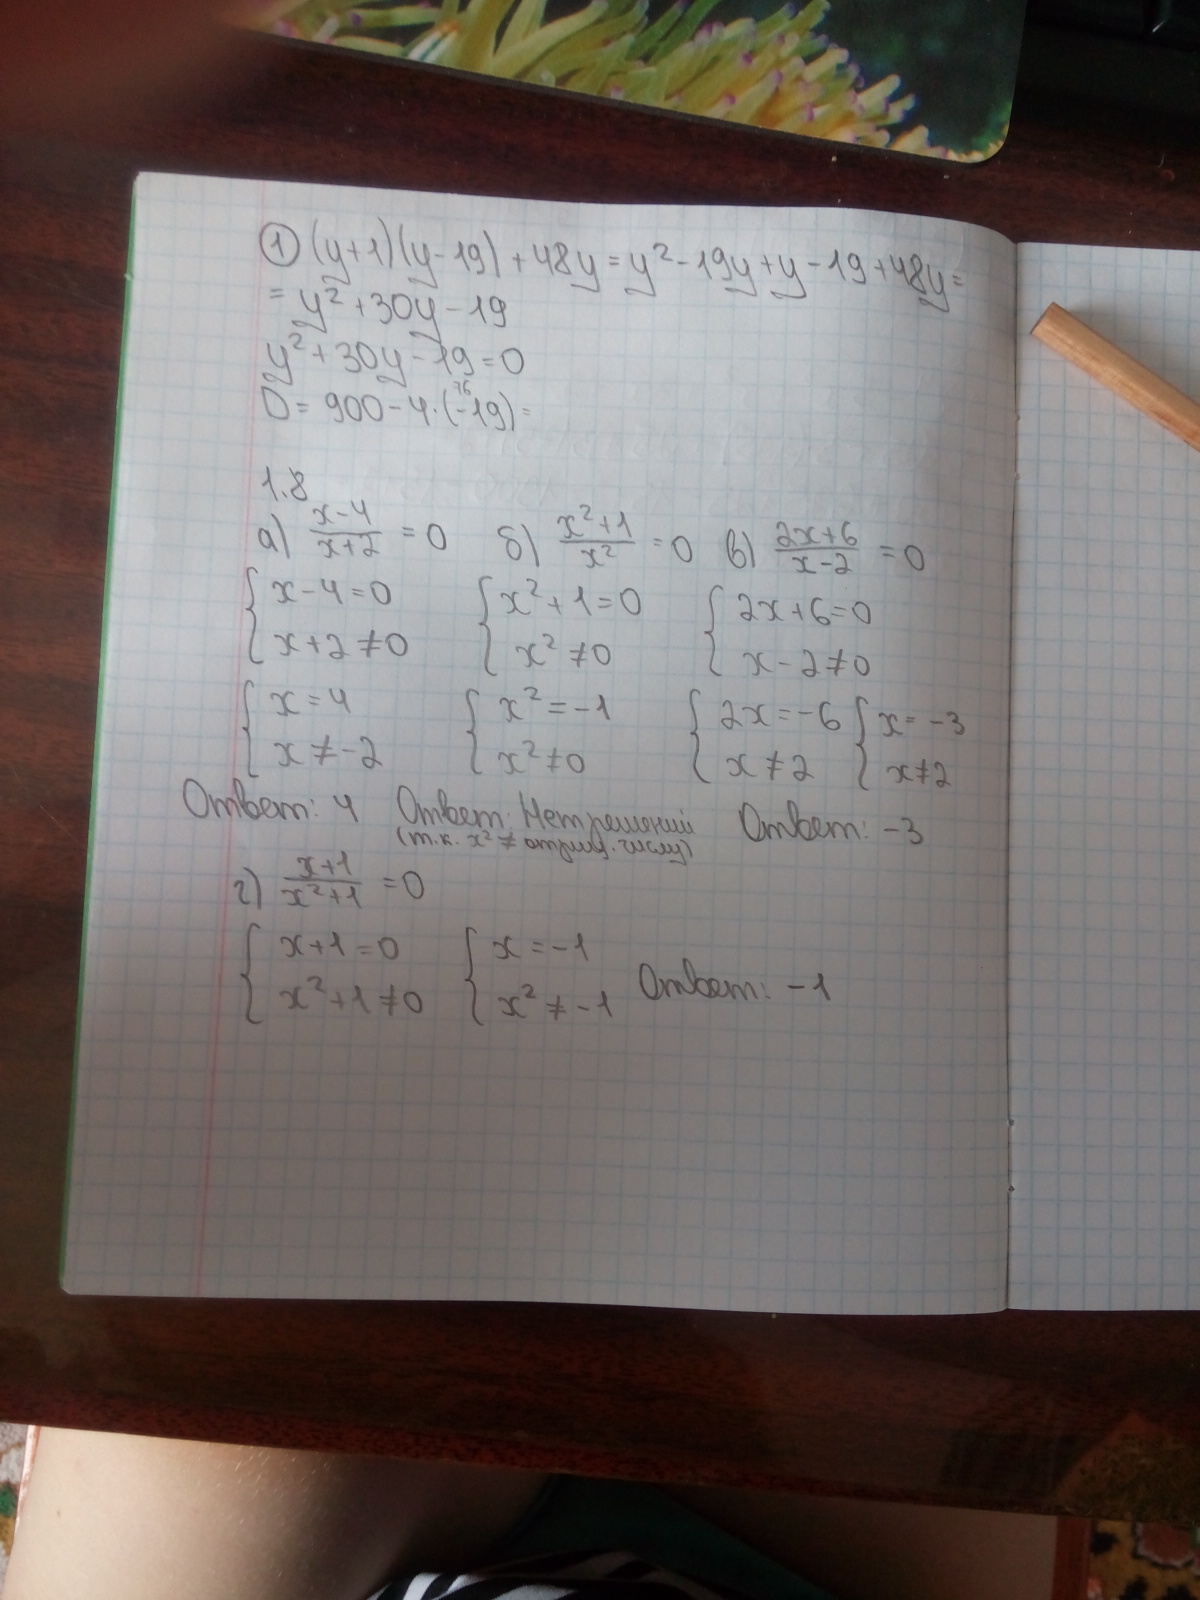 ① (y+1)(y-19)+48y=y²-19y+y-19+48y=
=y²+30y-19
y²+30y-19=0
76
D=900-4·(-19)=
1.8
а) (x-4)/(x+2) =0 б) (x²+1)/x² =0 в) (2x+6)/(x-2) =0
{ x-4=0 { x²+1=0 { 2x+6=0
x+2≠0 x²≠0 x-2≠0
{ x=4 { x²=-1 { 2x=-6 { x=-3
x≠-2 x²≠0 x≠2 x≠2
Ответ: 4 Ответ: Нет решений Ответ: -3
(т.к. x²≠отриц. числу)
г) (x+1)/(x²+1) =0
{ x+1=0 { x=-1
x²+1≠0 x²≠-1 Ответ: -1